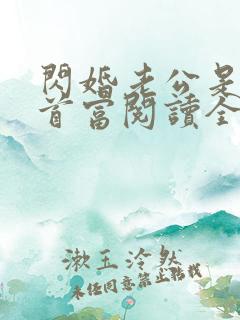 閃婚老公是
首富閱讀全
漱玉泠然
未經同意禁止轉載